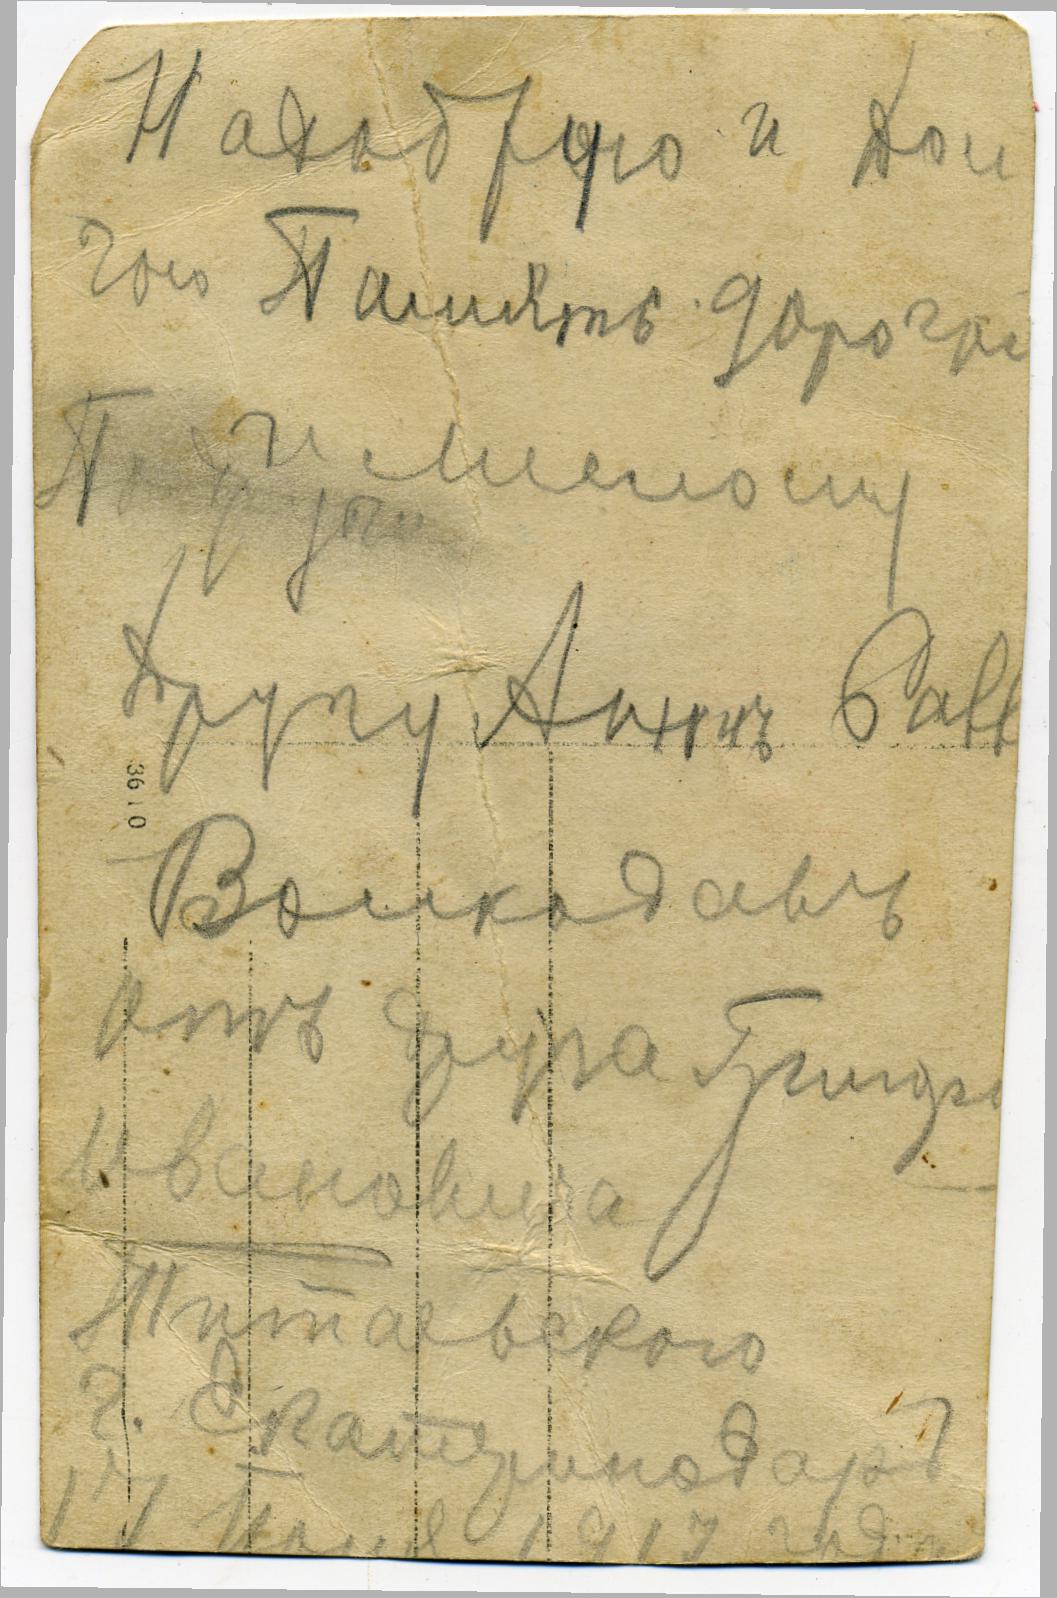 На добрую и дол
гою Память дорогой
и милому
другу Анне Савв
Волкодавъ
отъ друга
Ивановича
Титаевского
г. Екатеринодаръ
17 Июня 1917 года
3610